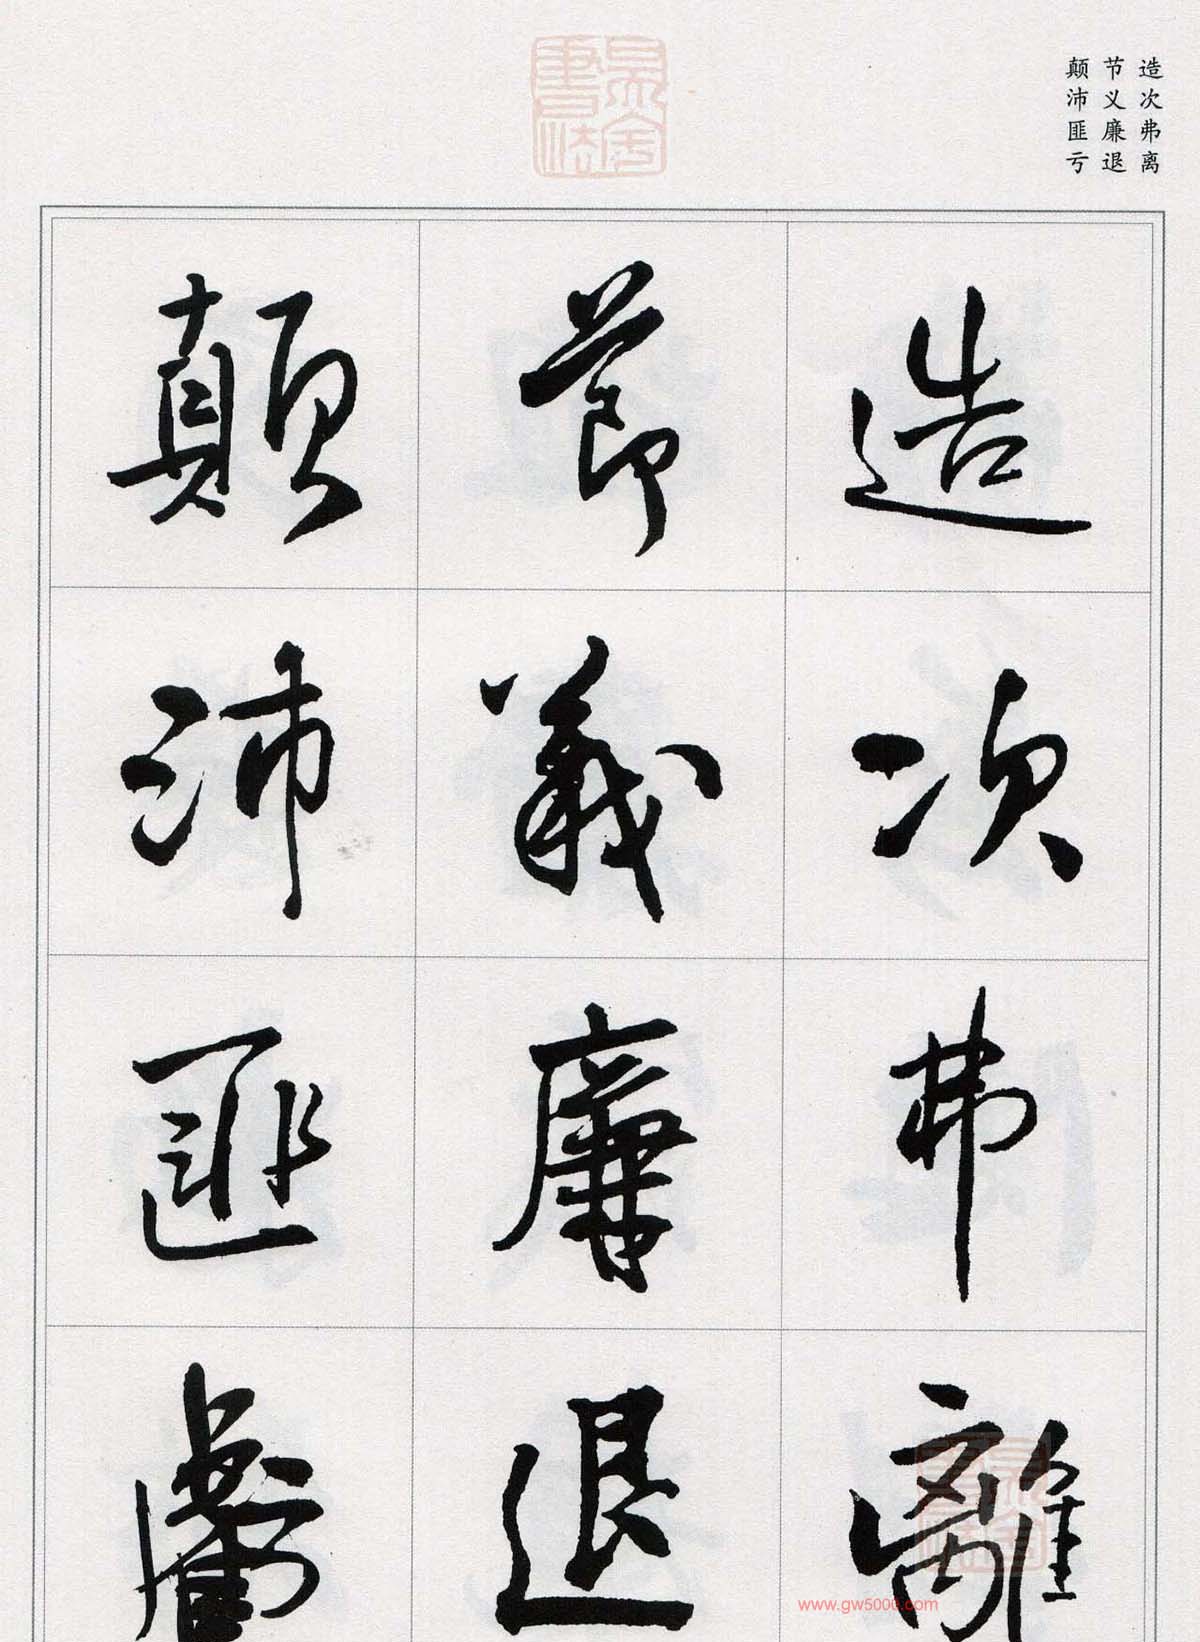 造次弗离
节义廉退
颠沛匪亏
造次弗離
節義廉退
顛沛匪虧
www.gw5000.com